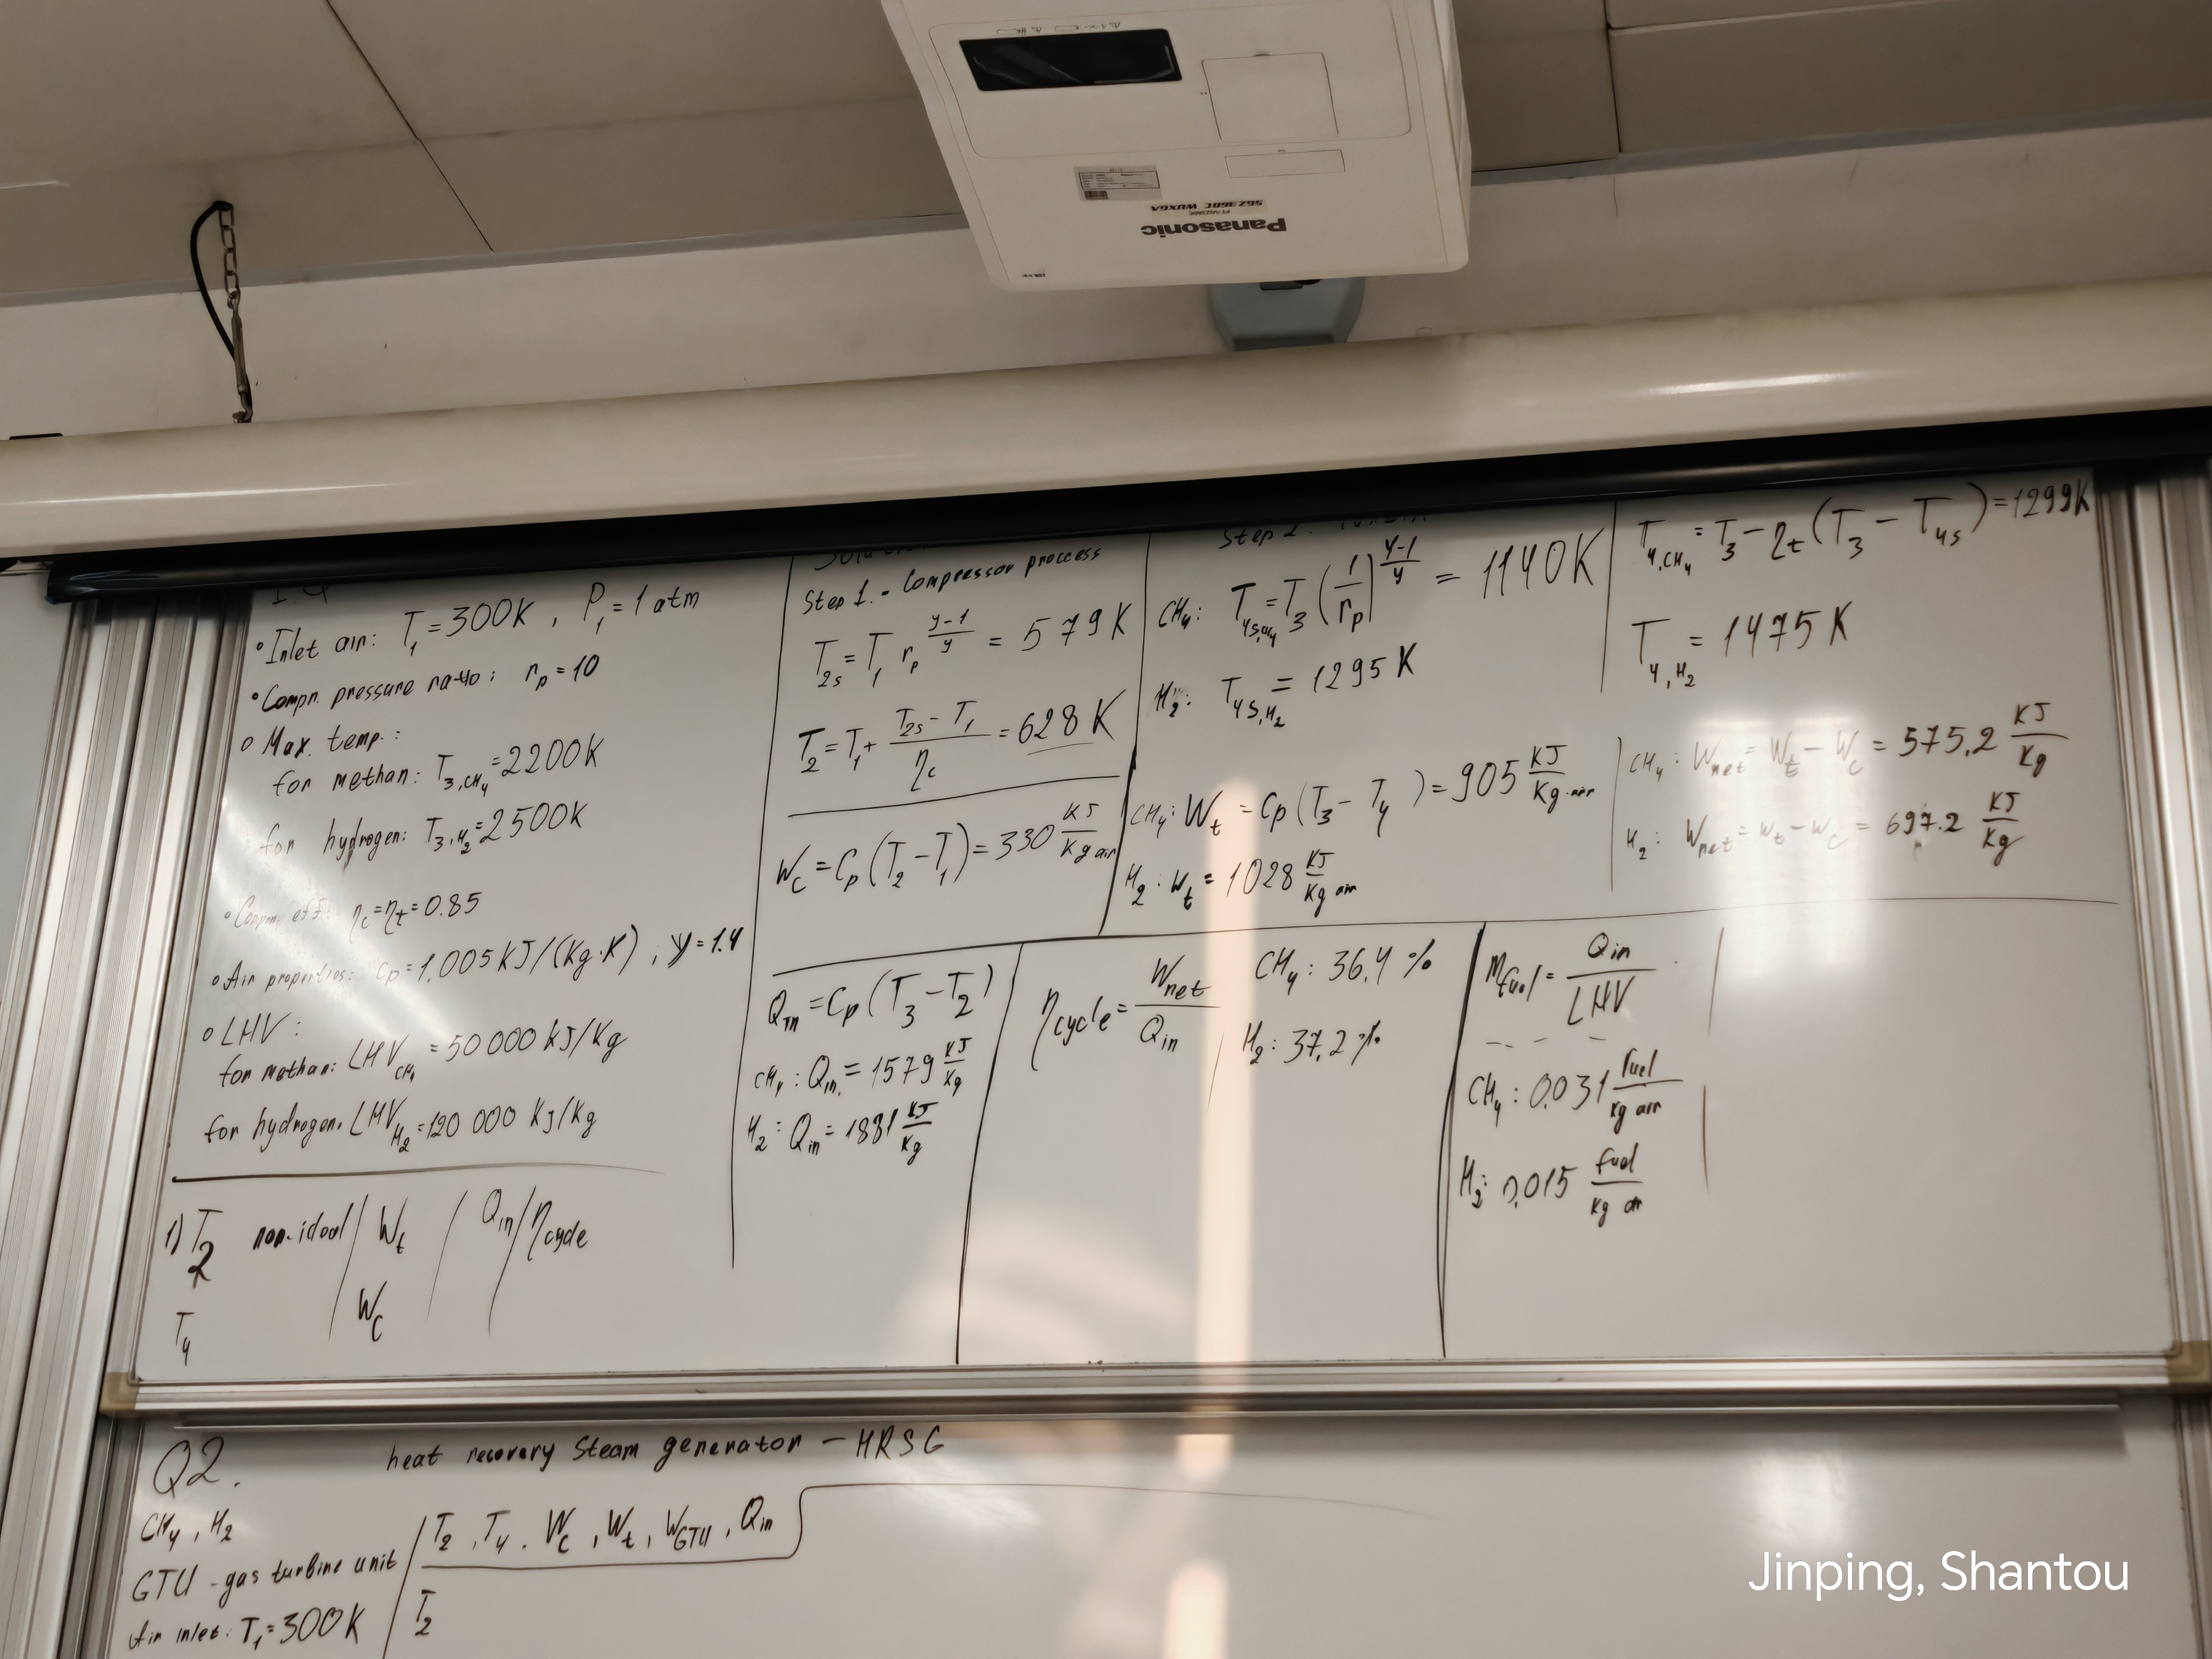 Panasonic
WUXGA
Inlet air: T₁ = 300K, P₁ = 1 atm
Compr. pressure ratio: rₚ = 10
Max. temp.:
for methan: T₃,CH₄ = 2200K
for hydrogen: T₃,H₂ = 2500K
Compr. eff: ηc = ηt = 0.85
Air properties: Cp = 1,005 KJ/(Kg·K), γ = 1.4
LHV:
for methan: LHV CH₄ = 50 000 kJ/Kg
for hydrogen. LHV H₂ = 120 000 KJ/Kg
1) T₂ non-ideal / Wt / Qin / ηcycle
T₄ Wc
Step 1. - Compressor proccess
T₂s = T₁ rₚ^((γ-1)/γ) = 579 K
T₂ = T₁ + (T₂s - T₁)/ηc = 628 K
Wc = Cp (T₂ - T₁) = 330 KJ/Kg air
Step 2.
CH₄: T₄s,CH₄ = T₃ (1/rp)^((γ-1)/γ) = 1140K
H₂: T₄s,H₂ = 1295 K
CH₄: Wt = Cp (T₃ - T₄) = 905 KJ/Kg·air
H₂: Wt = 1028 KJ/Kg air
T₄,CH₄ = T₃ - ηt (T₃ - T₄s) = 1299K
T₄,H₂ = 1475 K
CH₄: Wnet = Wt - Wc = 575,2 KJ/Kg
H₂: Wnet = Wt - Wc = 697.2 KJ/Kg
Qin = Cp (T₃ - T₂)
CH₄: Qin = 1579 KJ/Kg
H₂: Qin = 1881 KJ/Kg
ηcycle = Wnet/Qin
CH₄: 36,4 %
H₂: 37,2 %
mfuel = Qin/LHV
CH₄: 0,031 fuel/kg air
H₂: 0,015 fuel/kg air
Q2. heat recovery Steam generator - HRSG
CH₄, H₂
GTU - gas turbine unit
Air inlet: T₁ = 300K
T₂, T₄, Wc, Wt, WGTU, Qin
T₂
Jinping, Shantou